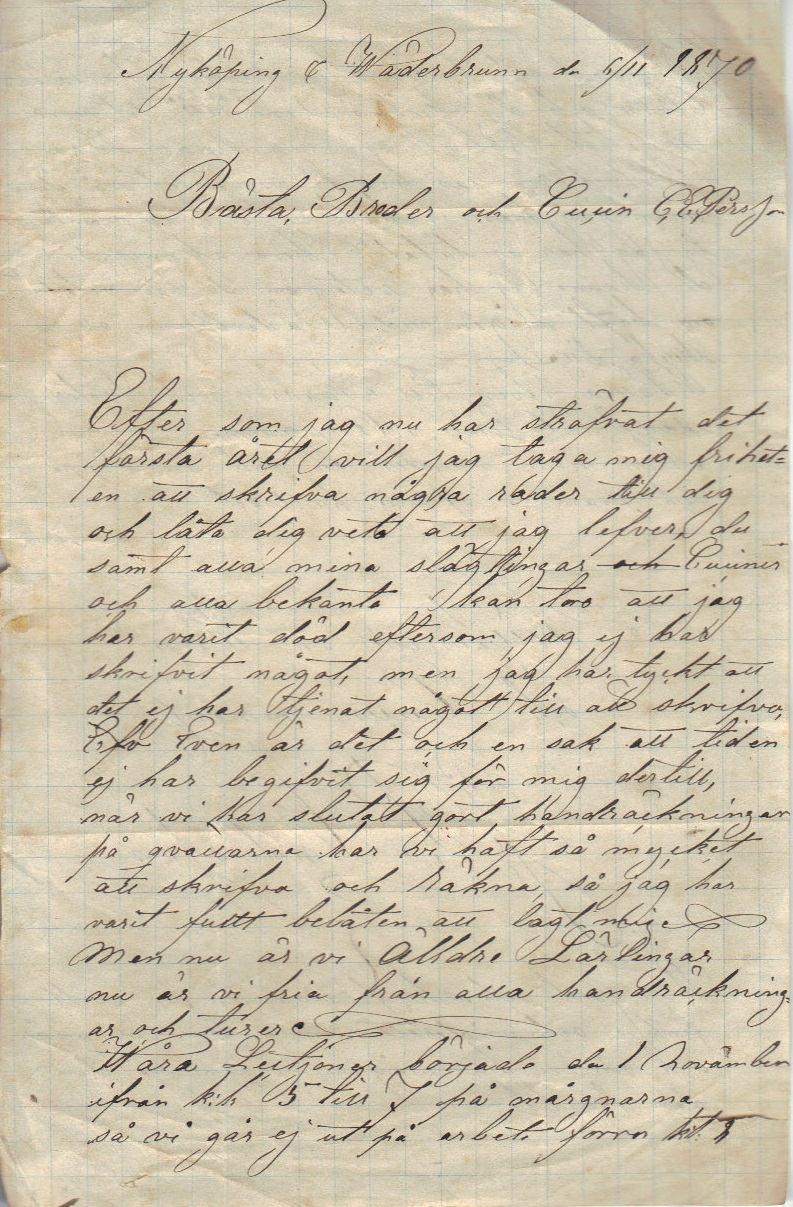 Nyköping & Wäderbrunn de 6/11 1870
Bästa, Broder och Cusin C. E. Persson
Efter som jag nu har sträfvat det
första året vill jag taga mig frihet=
en att skrifva några rader till dig
och låta dig veta att jag lefver, du
samt alla mina slägtingar och Cusiner
och alla bekanta kan tro att jag
har varit död eftersom jag ej har
skrifvit något, men jag har tyckt att
det ej har tjenat något till att skrifva,
Even är det och en sak att tiden
ej har begifvit sig för mig dertill,
når vi har slutat gört handräckningar
på qvällarna har vi haft så mycket
att skrifva och räkna, så jag har
varit fullt belåten att lagt mig
Men nu är vi Älldre Lärlingar
nu är vi fria från alla handräckning=
ar och turer
Wåra Lectjoner började de 1 Novämber
ifrån kl: 5 till 7 på mårgnarna
så vi går ej ut på arbete förrn kl: 8